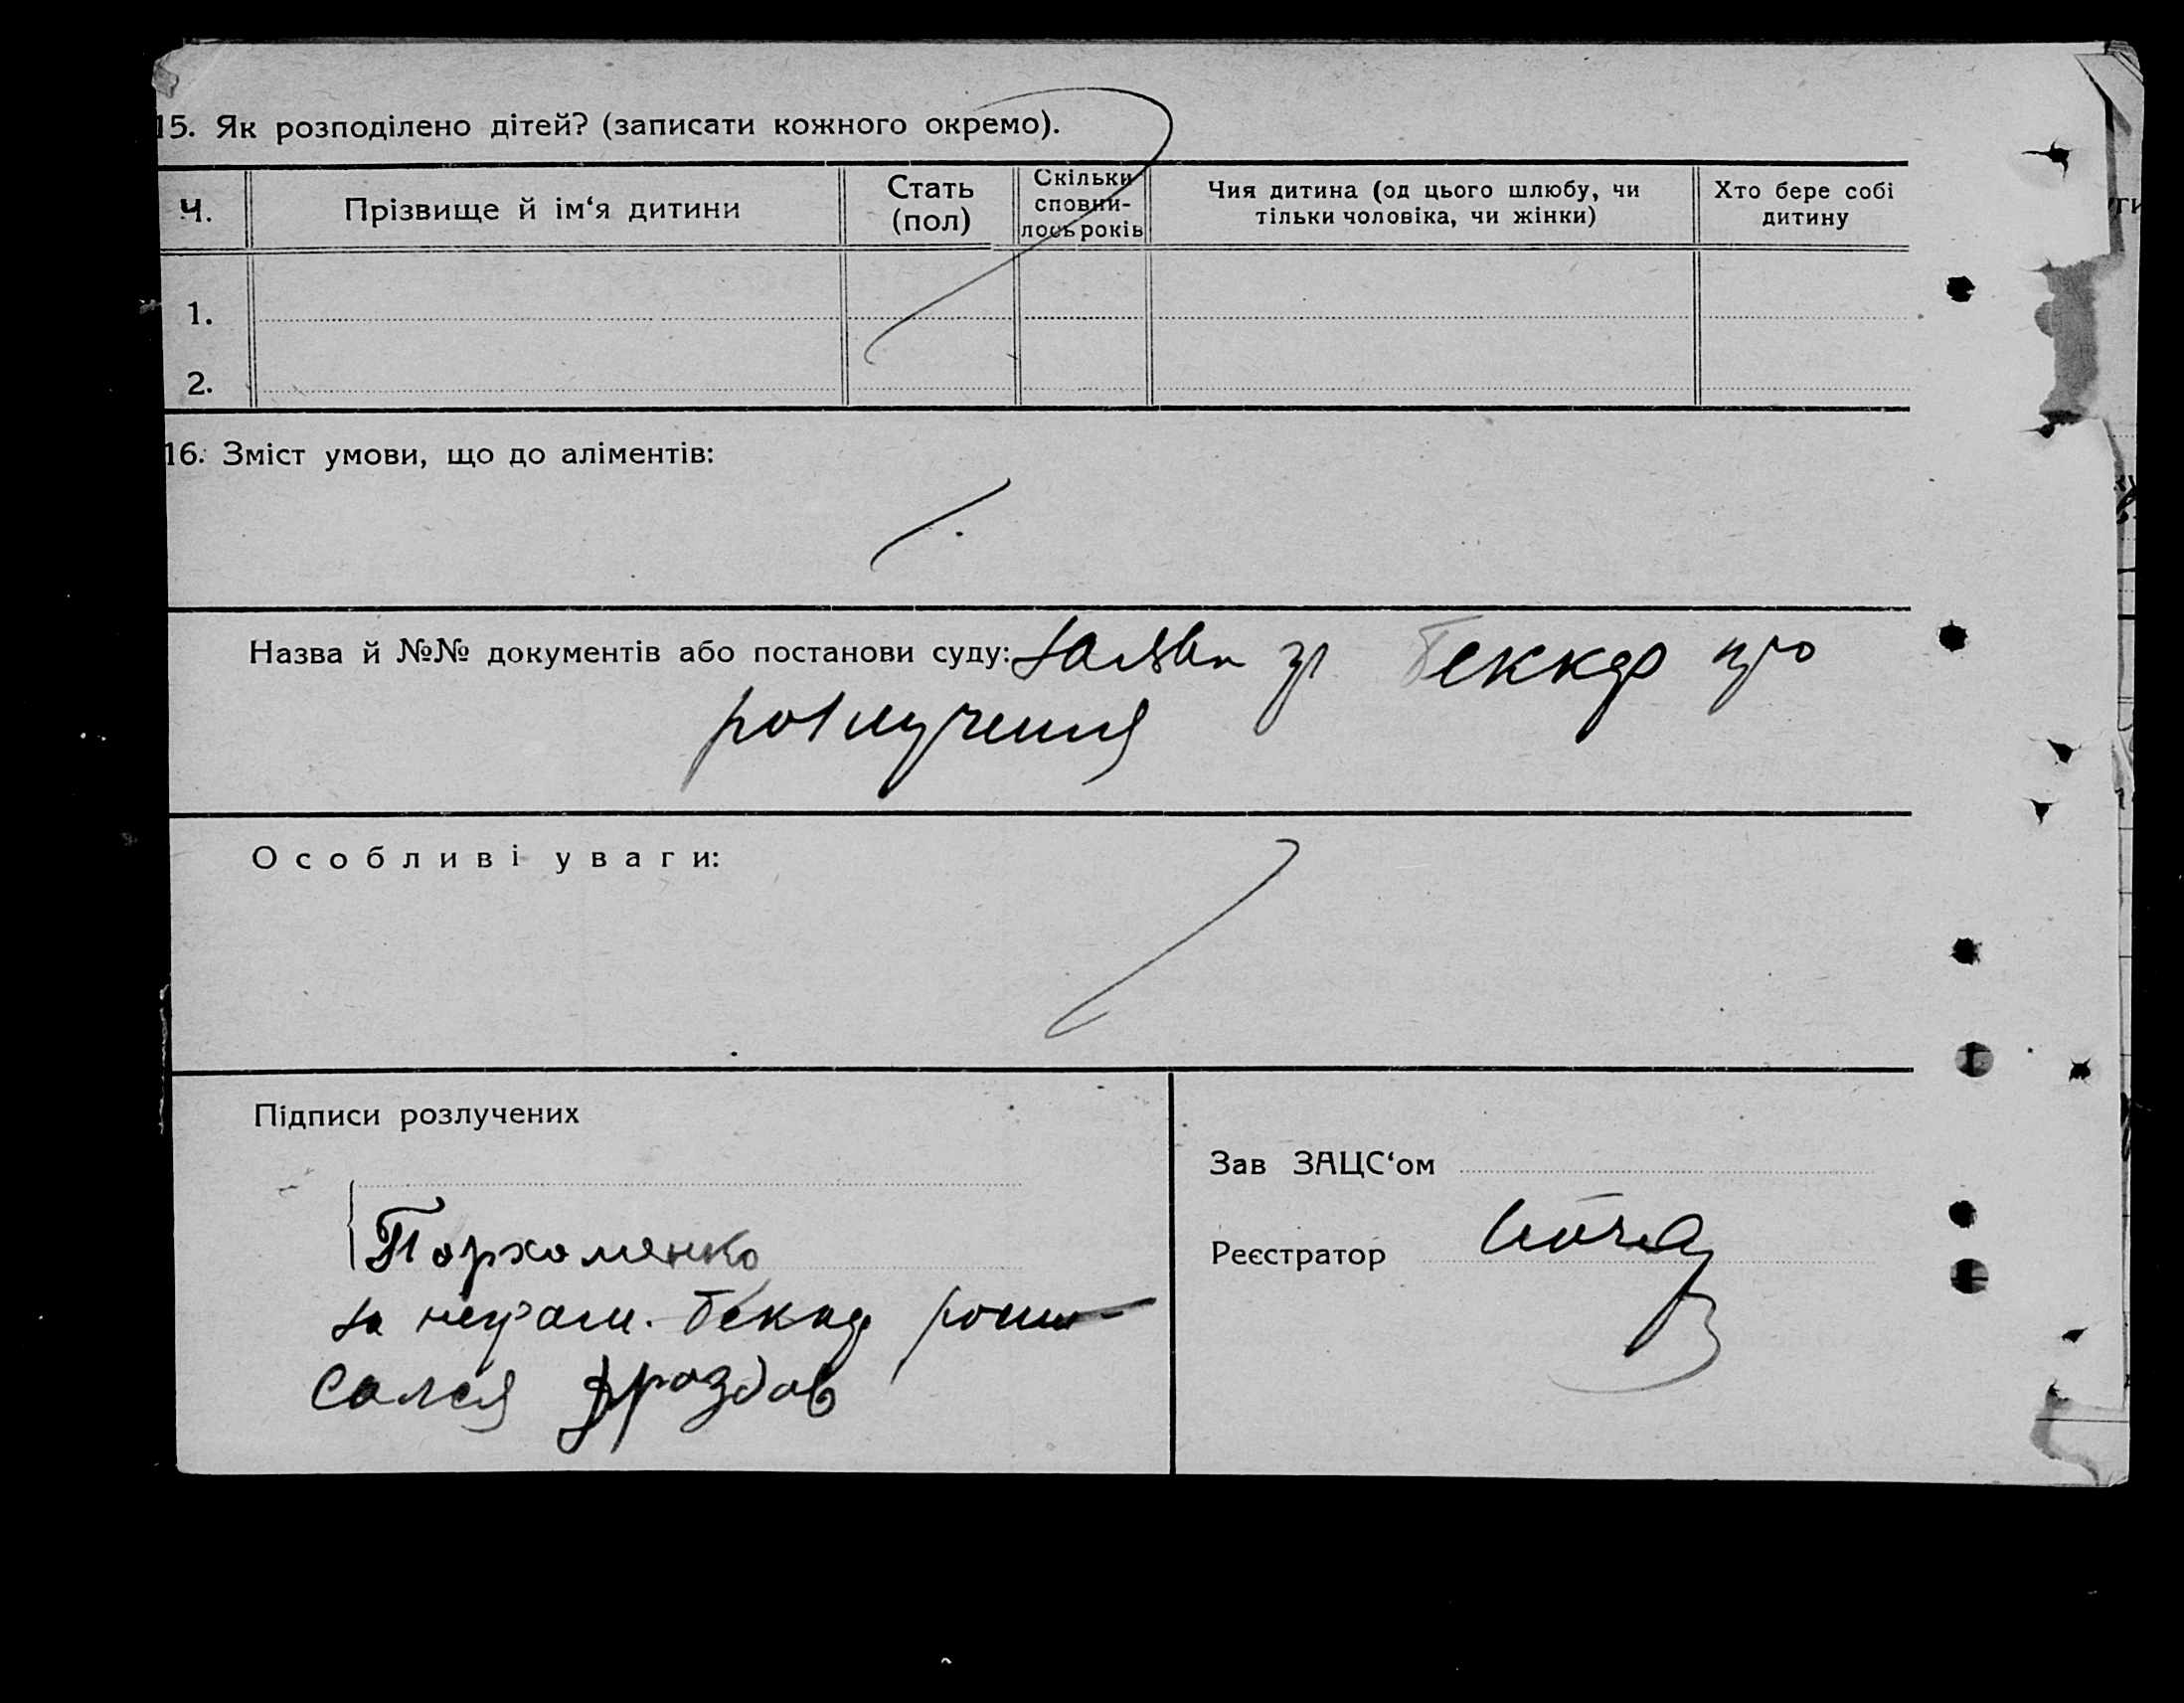 15. Як розподілено дітей? (записати кожного окремо).
Ч.
Прізвище й ім‘я дитини
Стать
(пол)
Скільки
сповни-
лось років
Чия дитина (од цього шлюбу, чи
тільки чоловіка, чи жінки)
Хто бере собі
дитину
1.
2.
16. Зміст умови, що до аліментів:
Назва й №№ документів або постанови суду: Заява гр. Беккер про
розлучення
Особливі уваги:
Підписи розлучених
Пархоменко
за неграм. Беккер роспи-
сался Дроздов
Зав ЗАЦС‘ом
Реєстратор